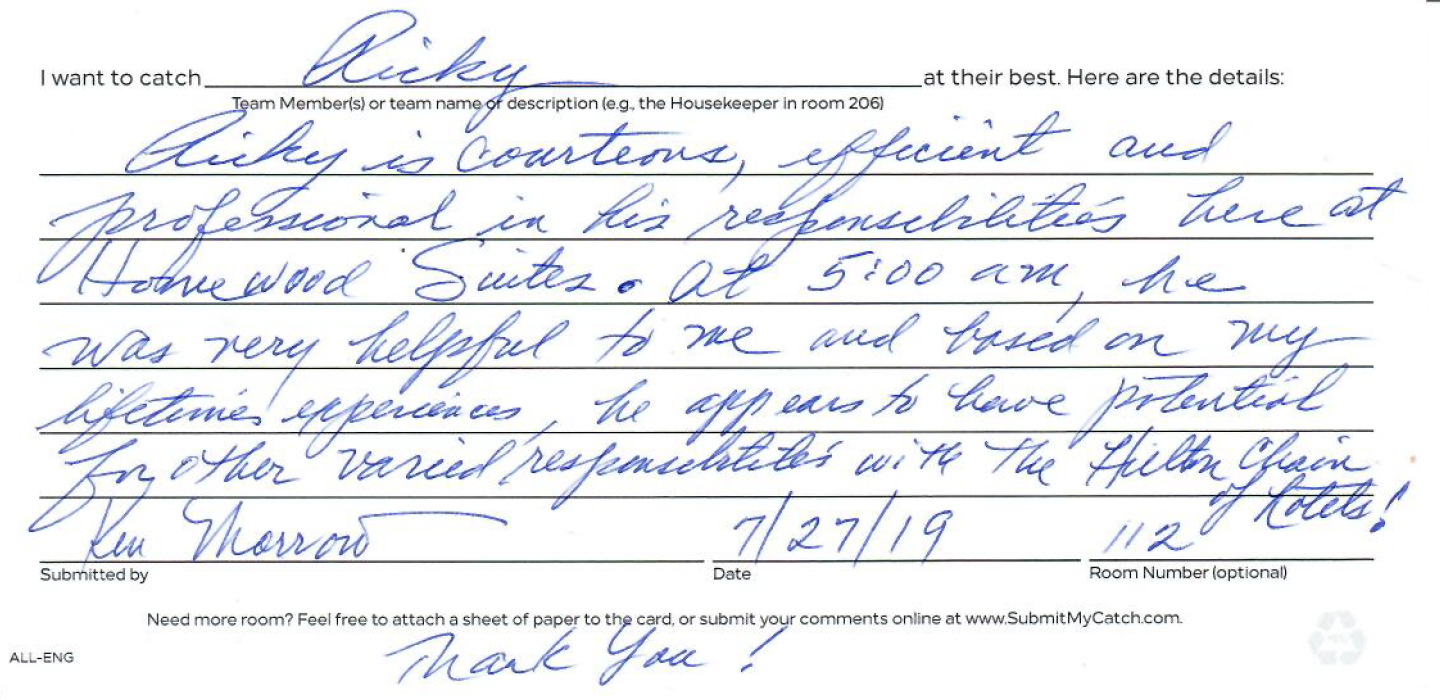 I want to catch Ricky at their best. Here are the details:
Team Member(s) or team name or description (e.g., the Housekeeper in room 206)
Ricky is courteous, efficient and
professional in his responsibilities here at
Homewood Suites. At 5:00 am, he
was very helpful to me and based on my
lifetimes experiences, he appears to have potential
for other varied responsibilities with the Hilton Chain
of Hotels!
Ken Morrow 7/27/19 112
Submitted by Date Room Number (optional)
Need more room? Feel free to attach a sheet of paper to the card, or submit your comments online at www.SubmitMyCatch.com.
Thank You!
ALL-ENG